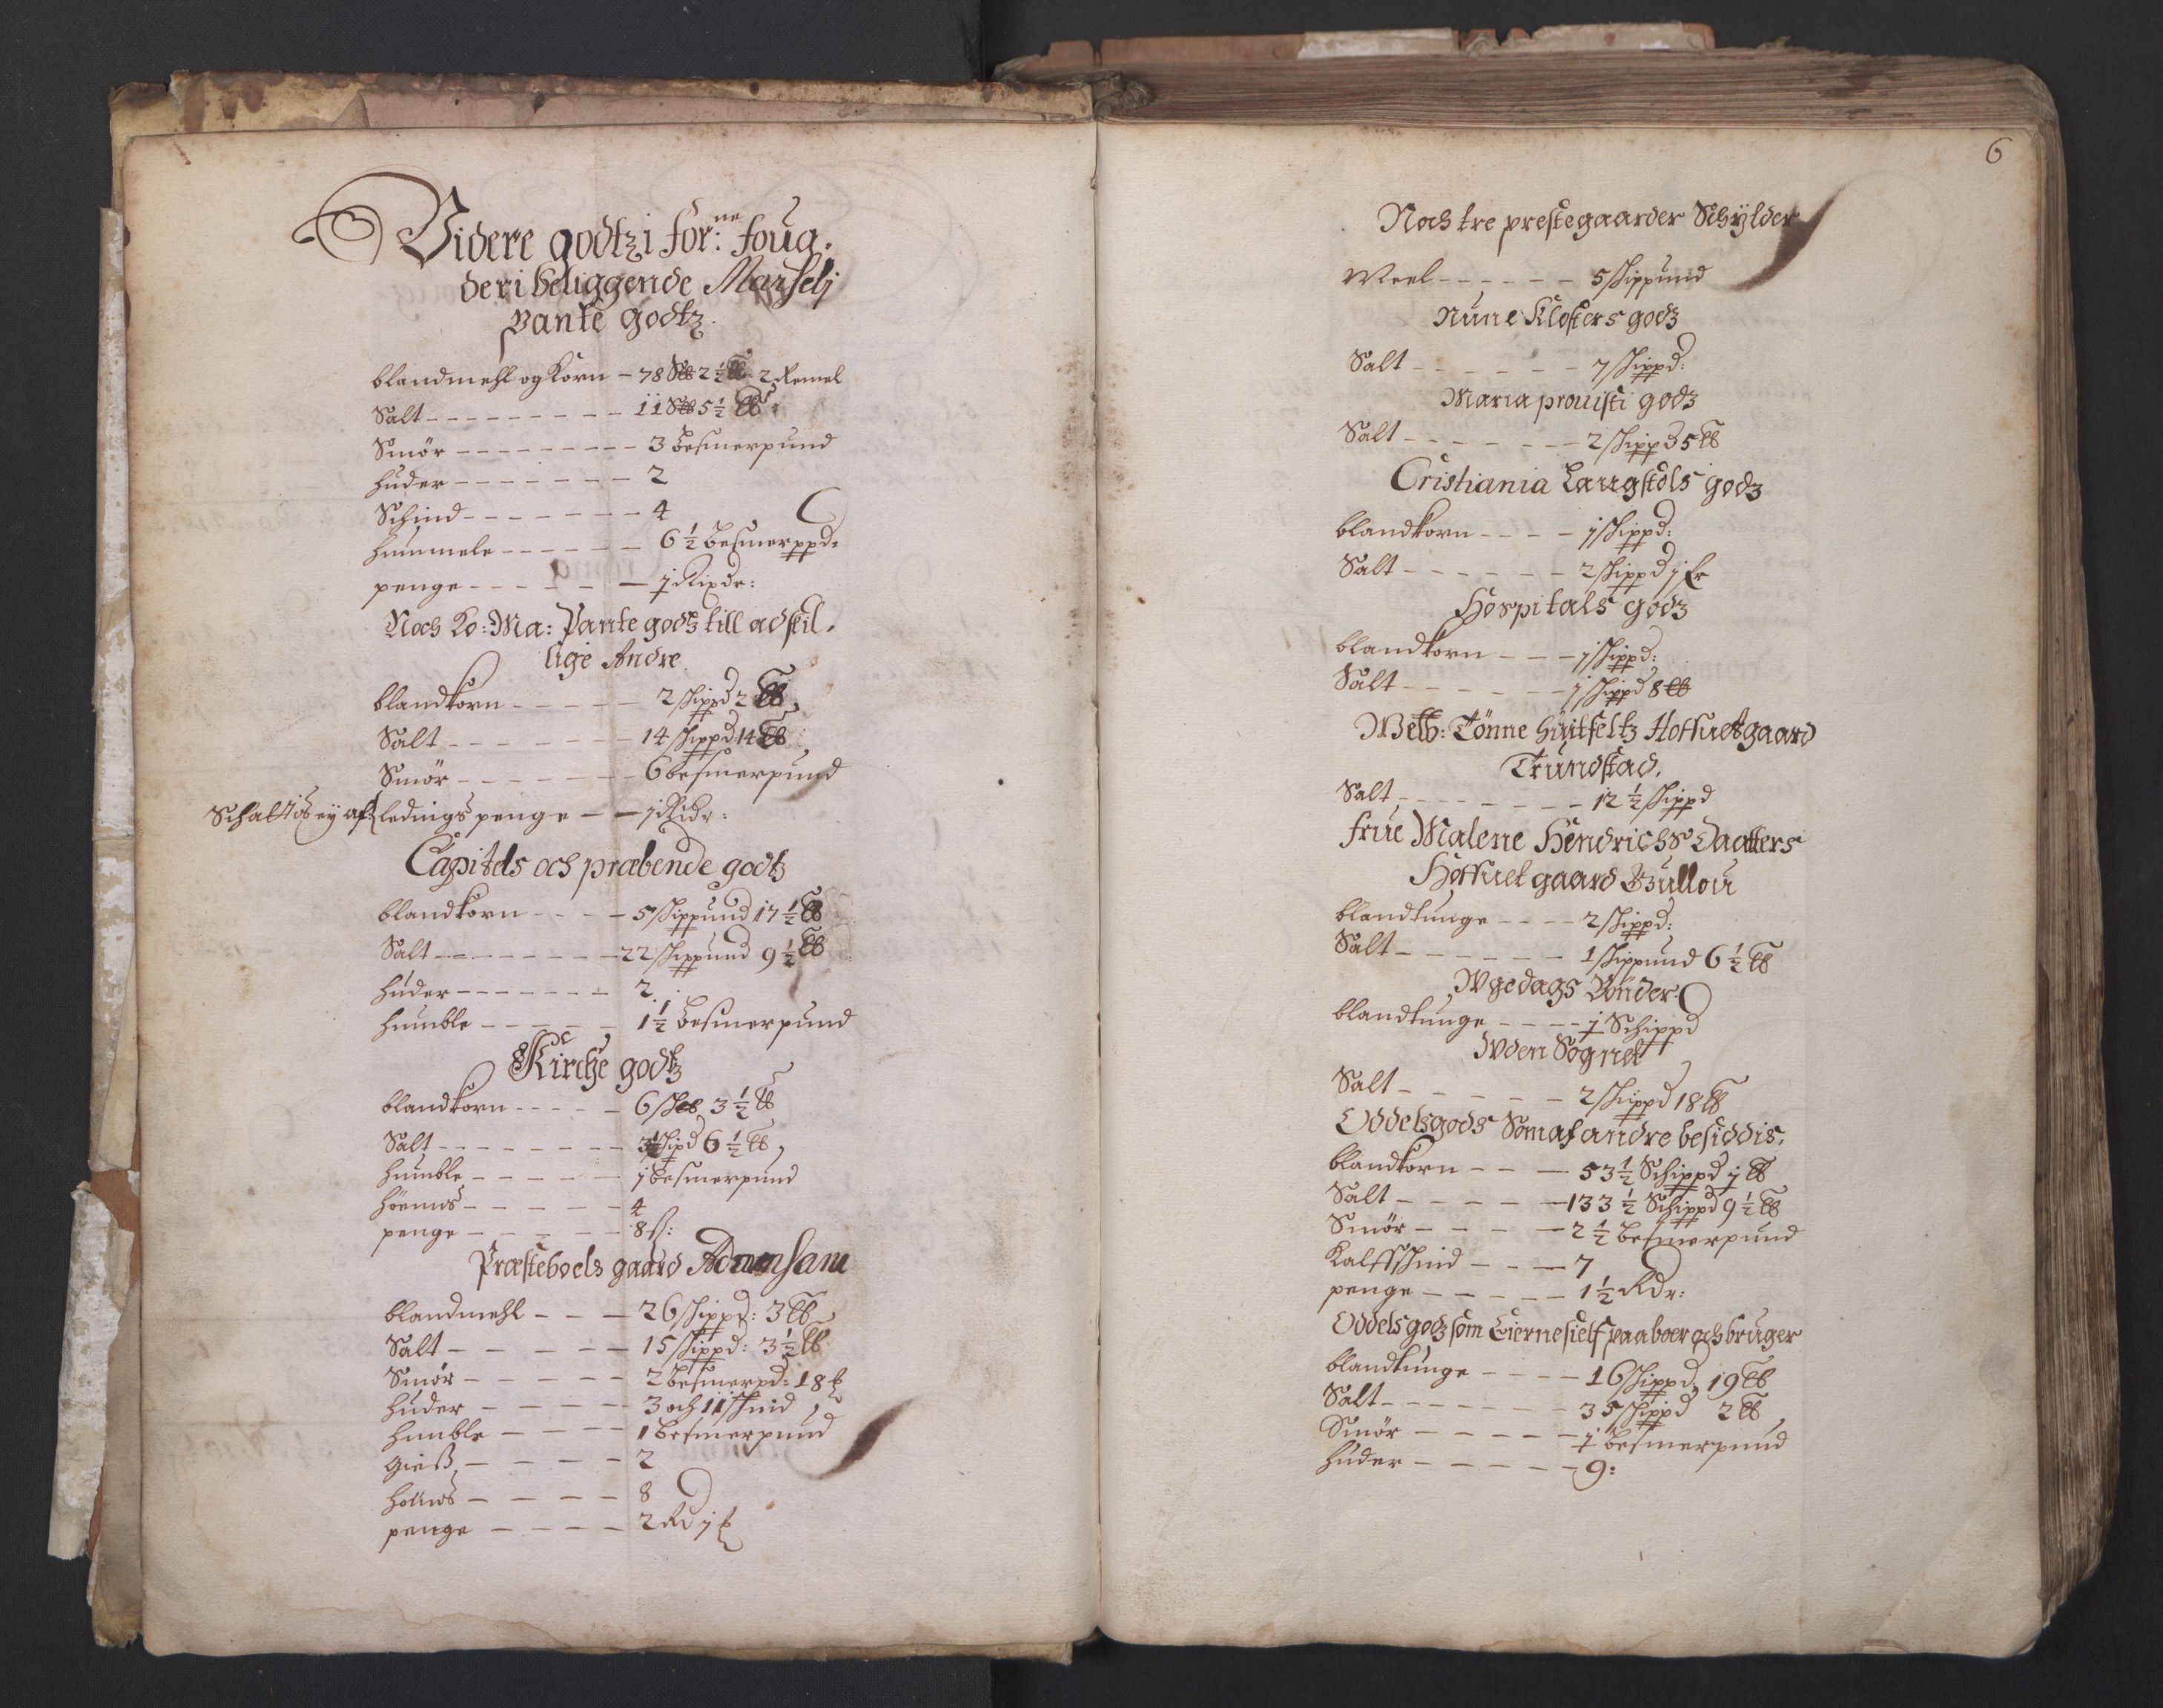 Videre godtz i for:ne foug.
deri beliggende Marselj
Pante godtz.
blandmehl og Korn - 78 S℔ 2 1/2 ℔ 2 Remel
Salt - 11 S℔ 5 1/2 ℔
Smör - 3 besmerpund
huder - 2
Schind - 4
hummele - 6 1/2 besmerppd.
penge - j Rixdr:
Noch Ko: Ma: Pante godtz till adskil.
lige Andre.
blandkorn - 2 skippd 2 ℔
Salt - 14 skippd: 14 ℔
Smör - 6 besmerpund
Schattis ey af ledings penge - j Ridr:
Capitels och præbende godtz
blandkorn - 5 skippund 17 1/2 ℔
Salt - 22 skippund 9 1/2 ℔
huder - 2.
humble - 1 1/2 besmerpund
Kirche godtz
blandkorn - 6 sk℔ 3 1/2 ℔
Salt - skipd 6 1/2 ℔
humble - j besmerpund
höenns - 4
penge - 8 ß:
Præsteboels gaard
blandmehl - 26 skippd: 3 ℔
Salt - 15 skippd: 3 1/2 ℔
Smör - 2 besmerpd: 18
huder - 3 och 11 skind
humble - 1 besmerpund
Gieß - 2
höns - 8
penge - 2 Rd j
6
Noch tre prestegaarder Schÿlder
Meel - 5 skippund
Nune Klosters godz
Salt - 7 skippd:
Maria prouisti godz
Salt - 2 skippd 5 ℔
Cristiania Laugstols godz
blandkorn - j skippd:
Salt - 2 skippd j
Hospitals godz
blandkorn - j skippd:
Salt - j skippd 8 ℔
Welb: Tönne Huitfeltz Hoffuetgaard
Trundstad.
Salt - 12 1/2 skippd
frue Malene Hendrichs Daatters
Hoffuet gaard Bullou
blandtunge - 2 skippd:
Salt - 1 skippund 6 1/2 ℔
Wgedags Bönder
blandtunge - j Schippd
Wden Sognet
Salt - 2 skippd 18 ℔
Oddelsgods Som af andre besiddis.
blandkorn - 53 1/2 Schippd j ℔
Salt - 133 1/2 Schippd 9 1/2 ℔
Smör - 2 1/2 besmerpund
Kalffskind - 7
penge - 1 1/2 Rdr:
Oddelsgodz som Eierne sielf paaboer och bruger
blandtunge - 16 skippd. 19 ℔
Salt - 35 skippd 2 ℔
Smör - j besmerpund
huder - 9: